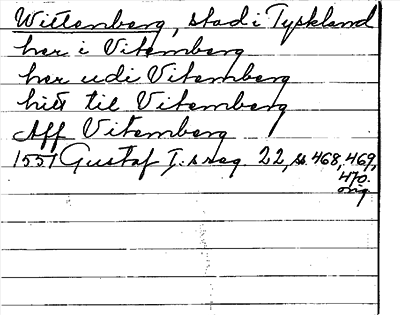 Wittenberg, stad i Tyskland
her i Vitemberg
her udi Vitemberg
hitt til Vitemberg
Aff Vitemberg
1551 Gustaf I:s reg. 22, ss. 468, 469,
470.
orig